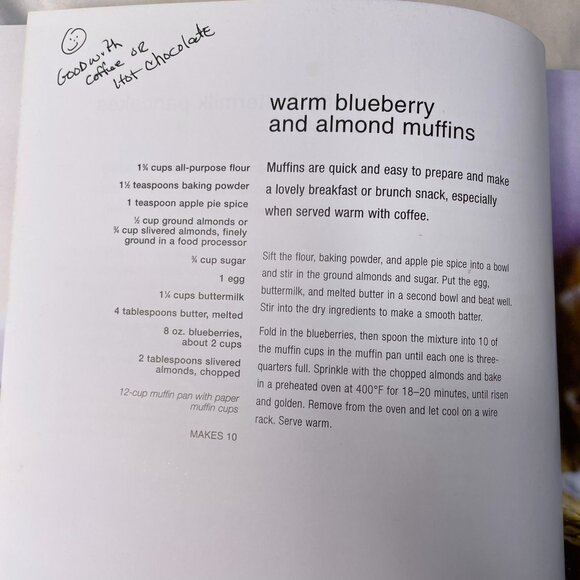 Good with
coffee or
Hot chocolate
warm blueberry
and almond muffins
1¾ cups all-purpose flour
1½ teaspoons baking powder
1 teaspoon apple pie spice
½ cup ground almonds or
¾ cup slivered almonds, finely
ground in a food processor
¾ cup sugar
1 egg
1¼ cups buttermilk
4 tablespoons butter, melted
8 oz. blueberries,
about 2 cups
2 tablespoons slivered
almonds, chopped
12-cup muffin pan with paper
muffin cups
MAKES 10
Muffins are quick and easy to prepare and make
a lovely breakfast or brunch snack, especially
when served warm with coffee.
Sift the flour, baking powder, and apple pie spice into a bowl
and stir in the ground almonds and sugar. Put the egg,
buttermilk, and melted butter in a second bowl and beat well.
Stir into the dry ingredients to make a smooth batter.
Fold in the blueberries, then spoon the mixture into 10 of
the muffin cups in the muffin pan until each one is three-
quarters full. Sprinkle with the chopped almonds and bake
in a preheated oven at 400°F for 18–20 minutes, until risen
and golden. Remove from the oven and let cool on a wire
rack. Serve warm.